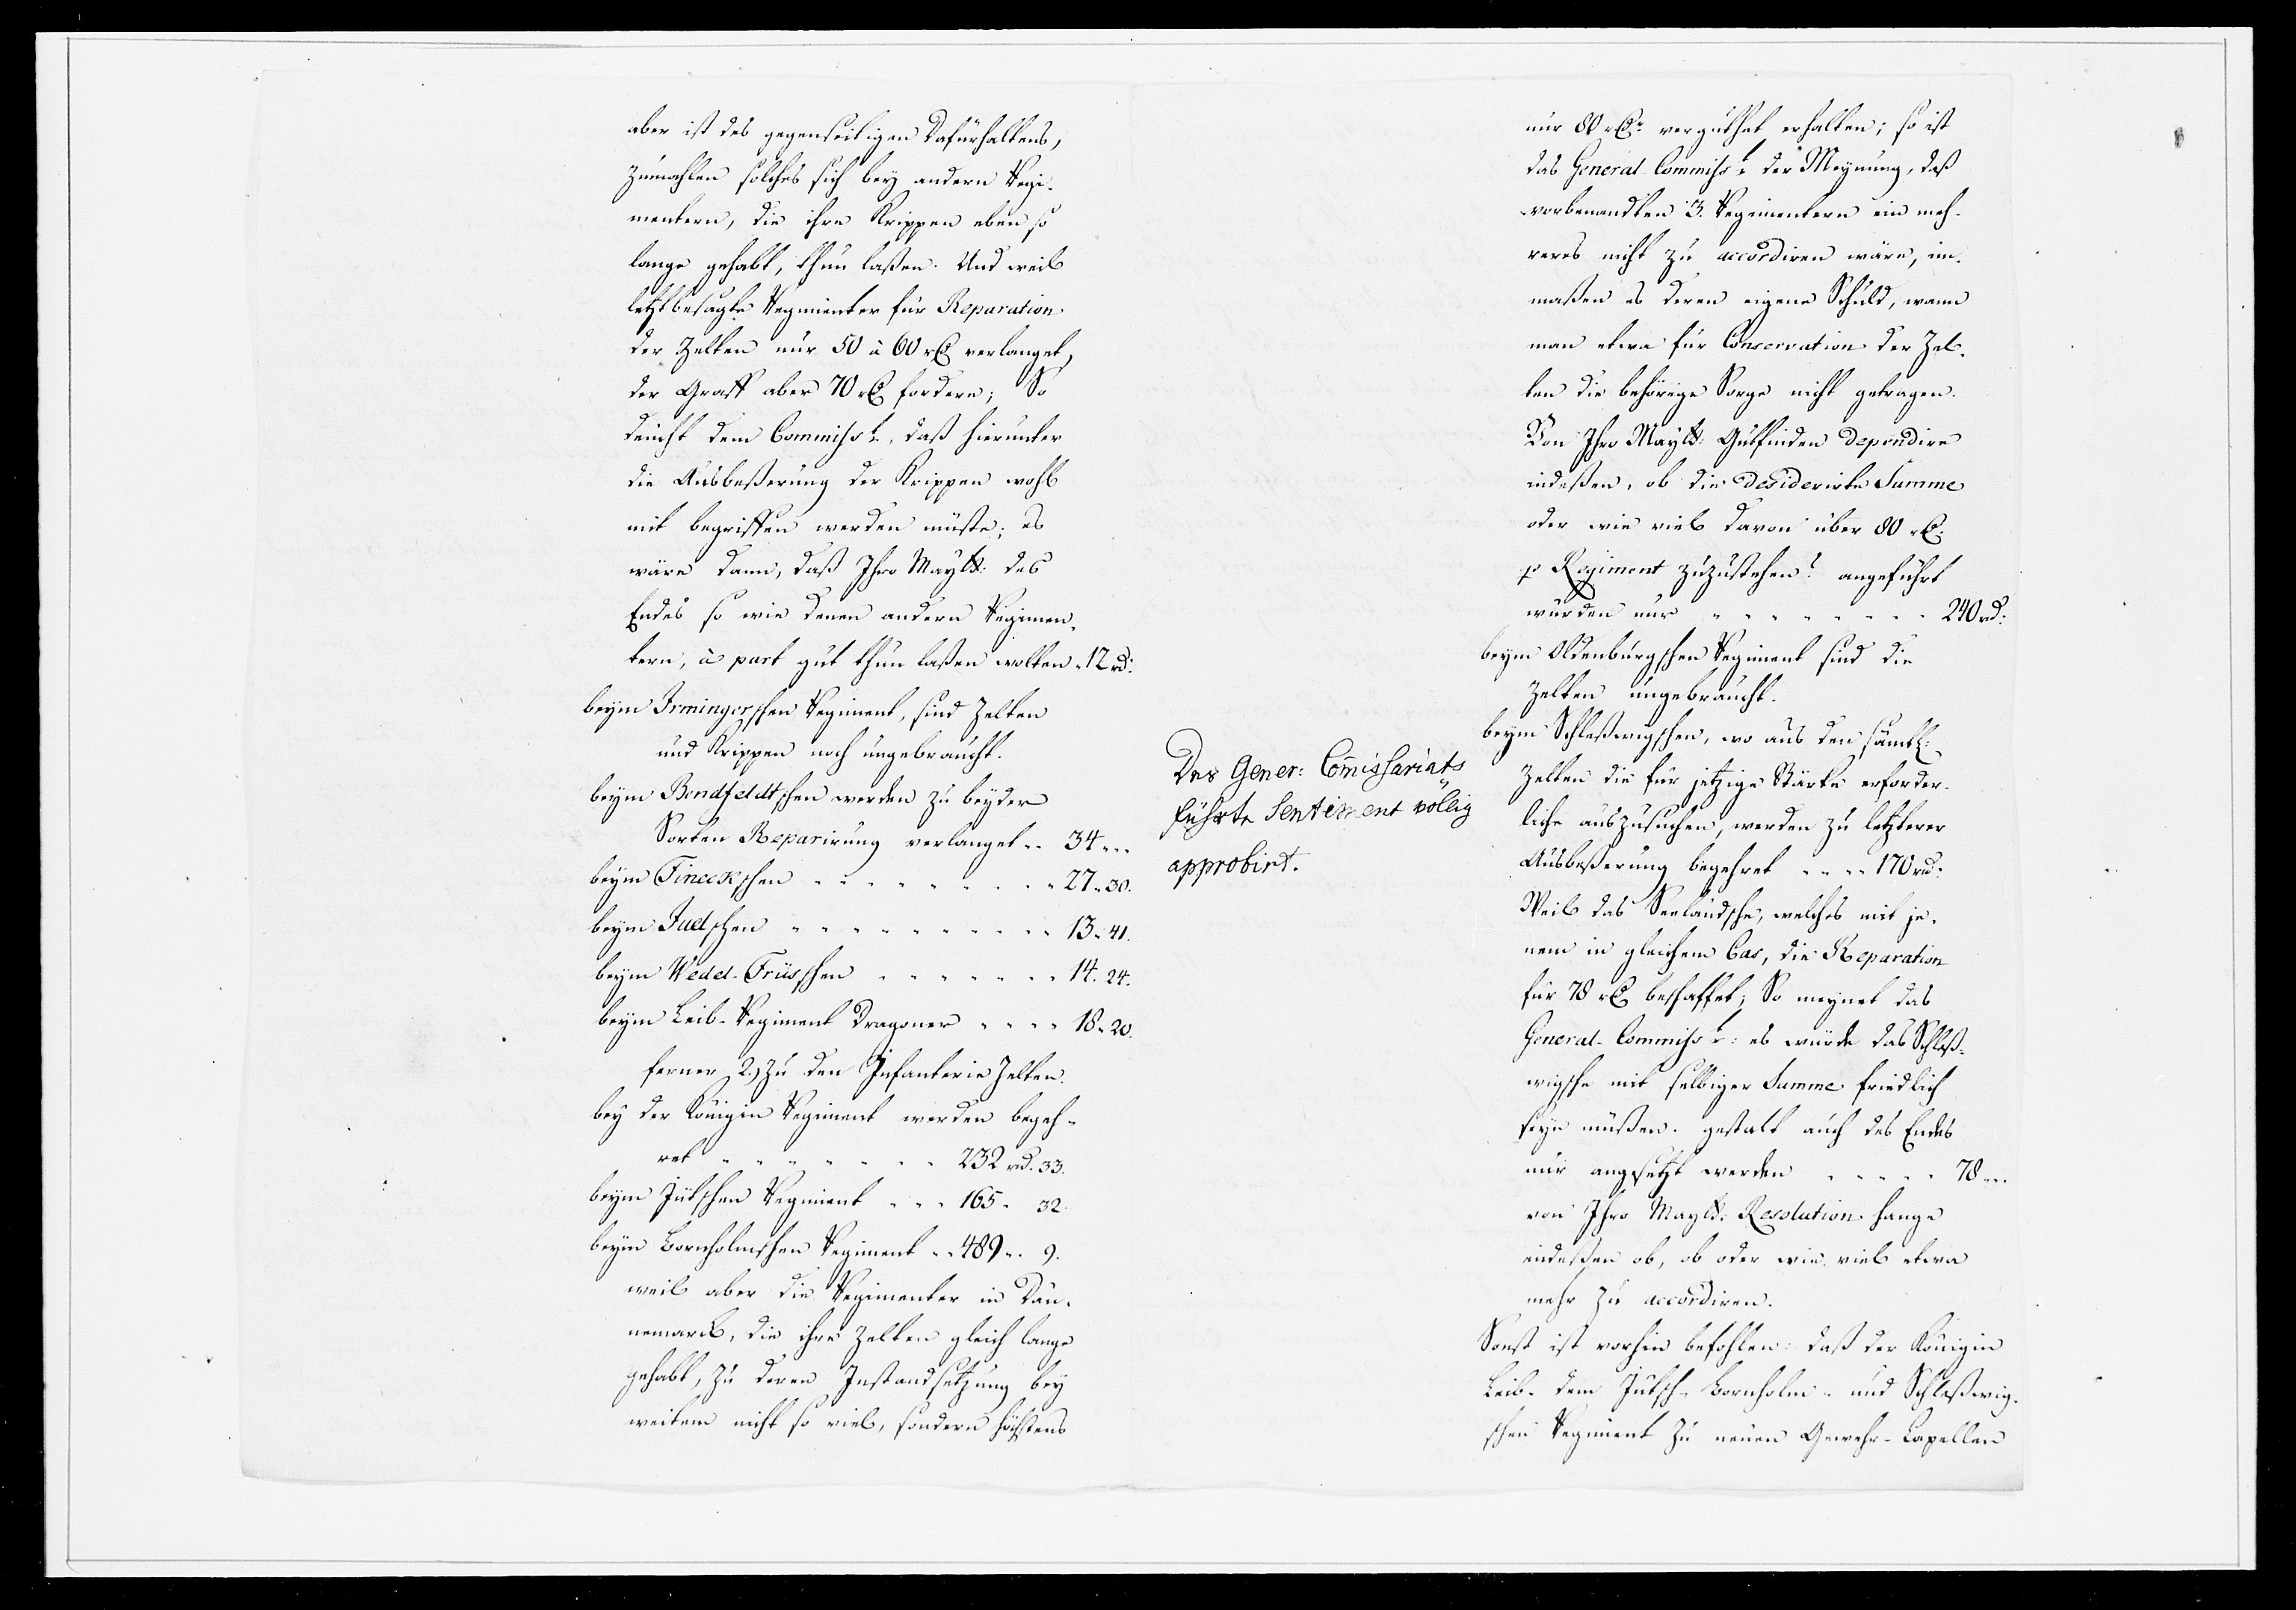 aber ist des gegenseitigen Dafürhaltens,
zumahlen solches sich bey andern Regi-
mentern, die ihre Krippen eben so
lange gehabt, thun laßen. Und weil
letztbesagte Regimenter für Reparation
der Zelten nur 50 à 60 rC verlanget,
der Graff aber 70 rC fordere; So
deucht dem Commissr., daß hierunter
die Ausbeßerung der Krippen wohl
mit begriffen werden müste; es
wäre dann, daß Ihro Maytt: des
Endes so wie denen andern Regimen-
tern, à part gut thun laßen wolten. 12 rd:
beym Irmingerschen Regiment, sind Zelten
und Krippen noch ungebraucht.
beym Bendfeldtschen werden zu beyder
Sorten Reparirung verlanget " 34 " "
beym Fineckschen " " " " " " " " 27. 30.
beym Juelschen " " " " " " " " " 13. 41.
beym Wedel-Früsschen " " " " " " 14. 24.
beym Leib-Regiment Dragoner " " " " 18. 20.
ferner 2.) zu den Infanterie Zelten.
bey der Königin Regiment werden begeh-
ret " " " " " " " 232 rd. 33.
beym Jütschen Regiment " " " 165. 32.
beym Bornholmschen Regiment " " 489 " 9.
weil aber die Regimenter in Dän-
nemarck, die ihre Zelten gleich lange
gehabt, zu deren Instandsetzung bey
weitem nicht so viel, sondern höchstens
nur 80 rC: vergüthet erhalten; so ist
das General-Commissr. der Meynung, daß
vorbenandten 3. Regimentern ein meh-
reres nicht zu accordiren wäre, im-
maßen es deren eigene Schuld, wann
man etwa für Conservation der Zel-
ten die behörige Sorge nicht getragen.
Von Ihro Maytt: Gutfinden dependire
indeßen, ob die desiderirte Summe
oder wie viel davon über 80 rC:
p Regiment zuzustehen? angeführt
würden nur " " " " " " " " 240 rd:
beym Oldenburgschen Regiment sind die
Zelten ungebraucht.
beym Schleßwigschen, wo aus den sämtl:
Zelten die für jetzige Stärke erforder-
liche auszusuchen, werden zu letzterer
Ausbeßerung begehret " " " " 170 rd:
Weil das Seeländsche, welches mit je-
nem in gleichem Cas, die Reparation
für 78 rC beschaffet; So meynet das
General-Commissr: es würde das Schleß-
wigsche mit selbiger Summe friedlich
seyn müßen. gestalt auch des Endes
nur angesetzt werden " " " " " 78 " "
von Ihro Maytt: Resolution hange
indeßen ab, ob oder wie viel etwa
mehr zu accordiren.
Sonst ist vorhin befohlen: daß der Königin
Leib- dem Jütsch- Bornholm- und Schleßwig-
schen Regiment zu neuen Gewehr-Capellen
Des Gener: Com̃issariats
führte Sentiment völlig
approbirt.